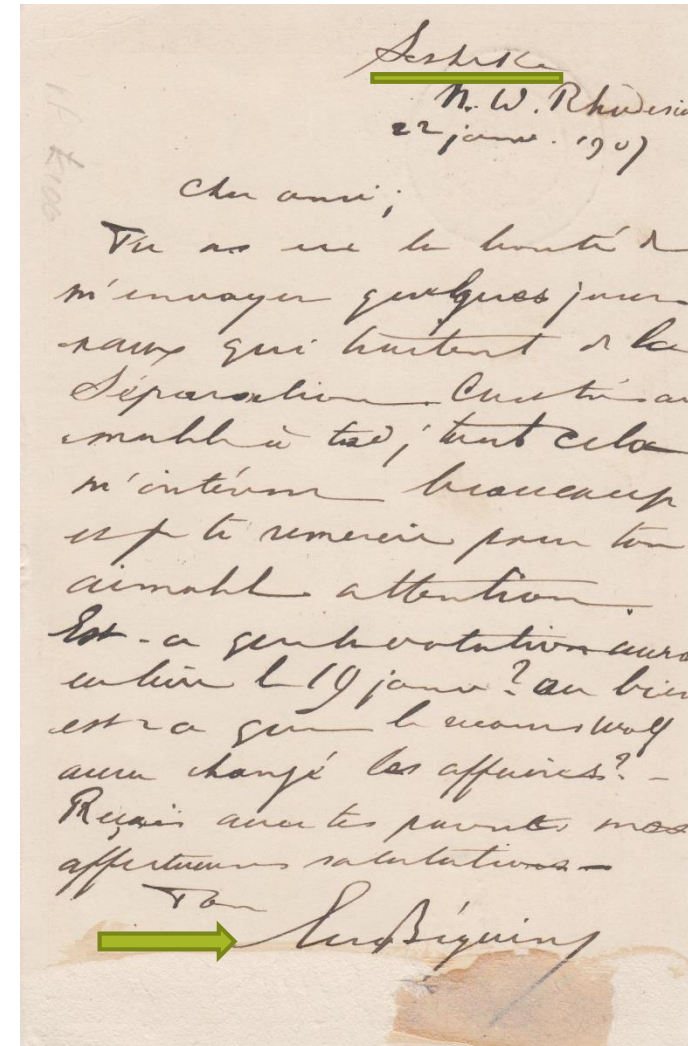 Sesheke
N. W. Rhodesia
22 janv. 1907
Cher ami;
Tu as eu la bonté de
m'envoyer quelques jour-
naux qui traitent de la
Séparation. C'est très ai-
mable à toi; tout cela
m'intéresse beaucoup
et je te remercie pour ton
aimable attention.
Est-ce que la votation aura
eu lieu le 19 janv? ou bien
est-ce que le recours Wolf
aura changé les affaires? -
Reçois avec tes parents mes
affectueuses salutations -
Ton
Eug Béguin